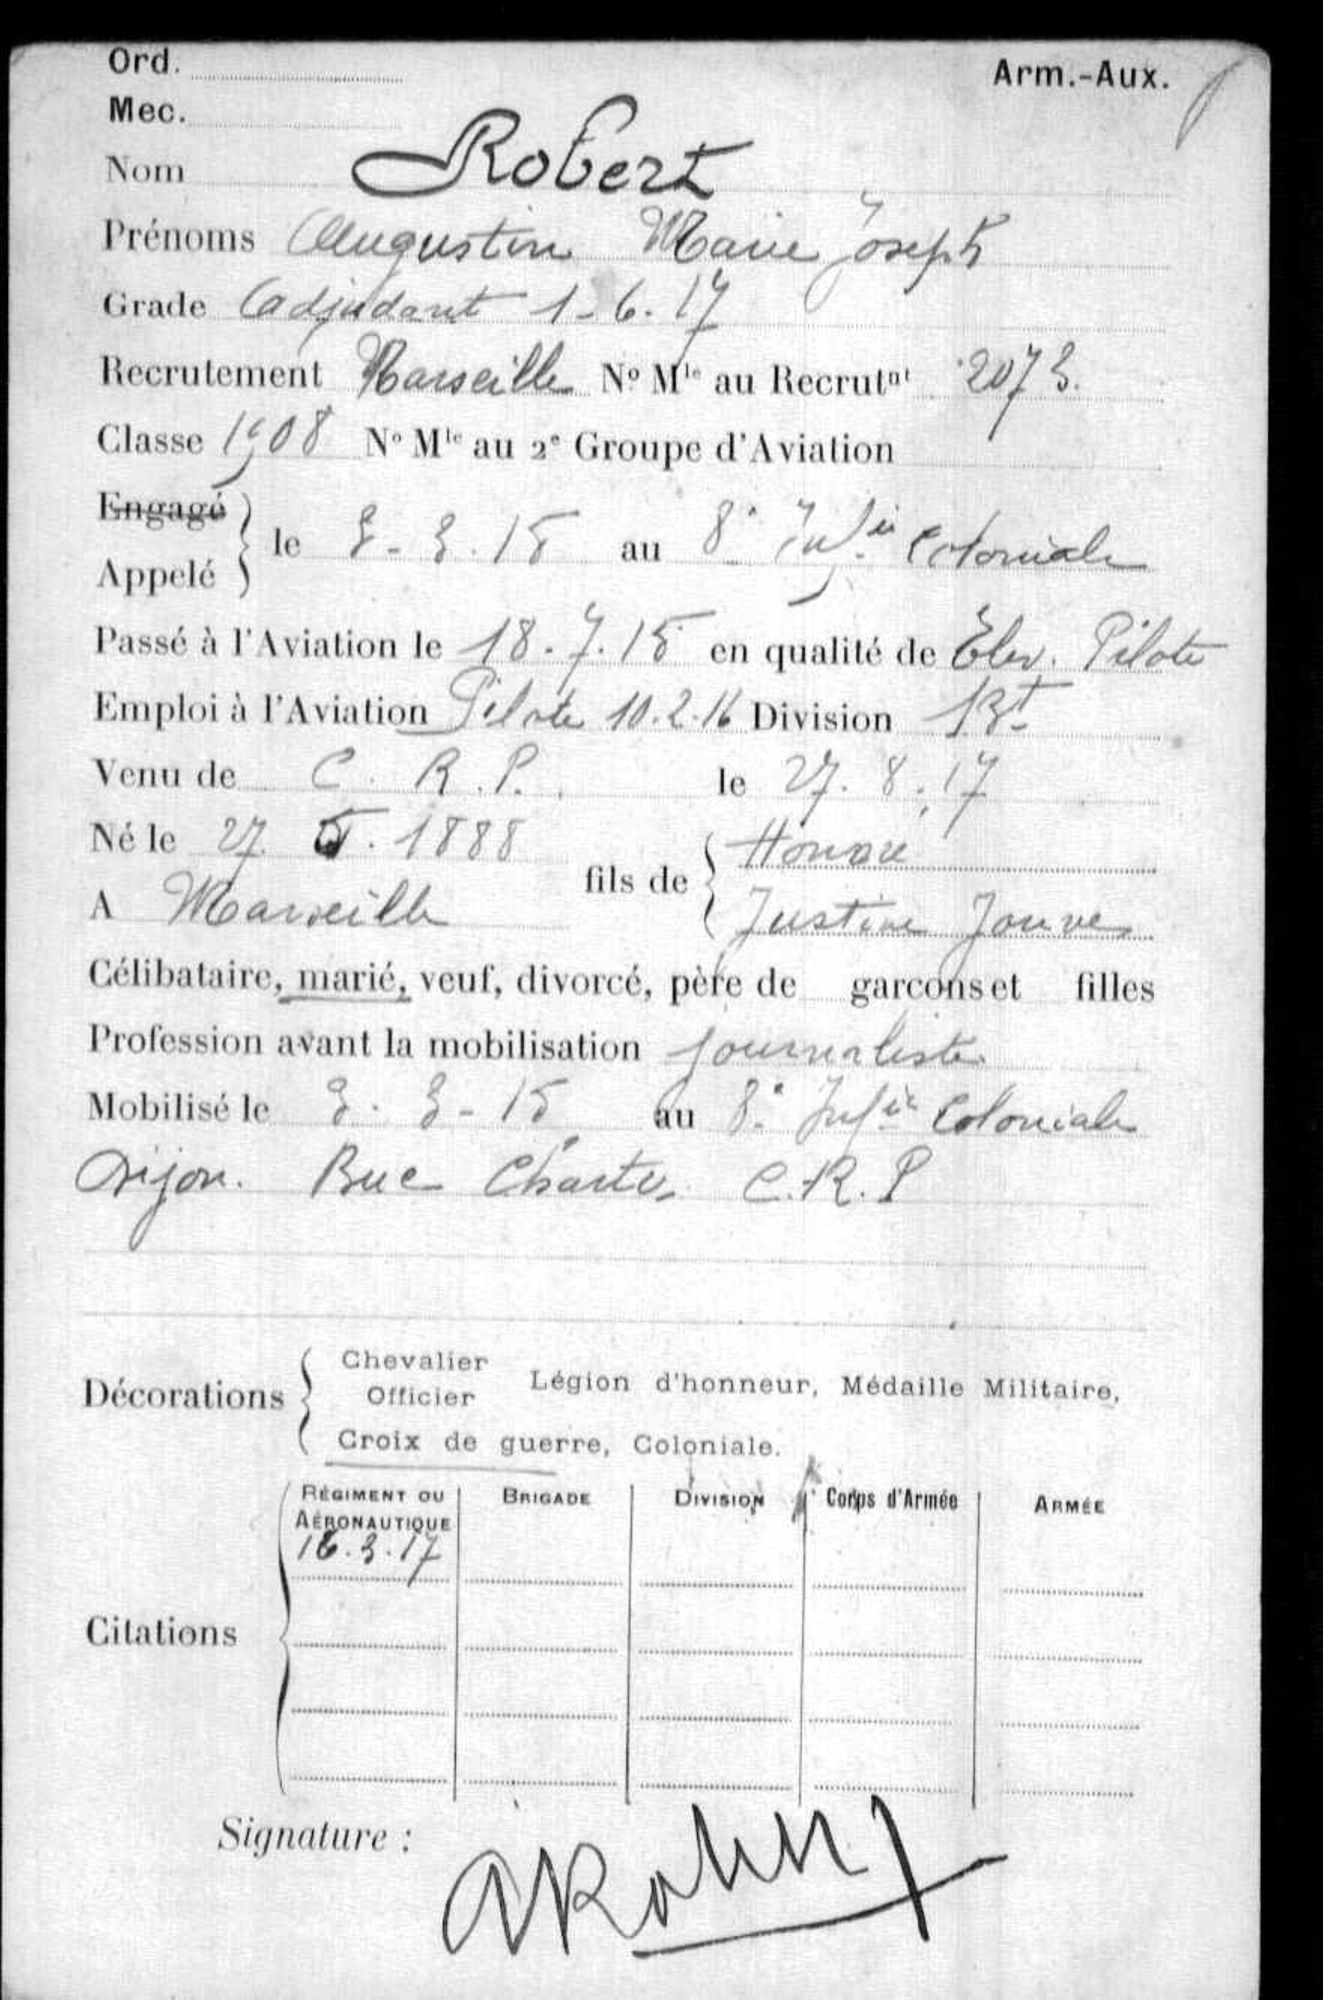 Ord.
Arm.-Aux.
Mec.
Nom Robert
Prénoms Augustin Marie Joseph
Grade Adjudant 1-6-17
Recrutement Marseille N° Mle au Recrutnt 2073.
Classe 1908 N° Mle au 2e Groupe d'Aviation
Engagé
Appelé
le 3-3.15 au 8e Infie Coloniale
Passé à l'Aviation le 18.7.15 en qualité de Elev. Pilote
Emploi à l'Aviation Pilote 10.2.16 Division
Venu de C.R.P. le 27.8.17
Né le 27. 1888
fils de Honoré
A Marseille Justine Jouve
Célibataire, marié, veuf, divorcé, père de garçons et filles
Profession avant la mobilisation journaliste
Mobilisé le 3.3-15 au 8e Infie Coloniale
Dijon. Buc Chartres C.R.P
Décorations
Chevalier
Officier
Légion d'honneur, Médaille Militaire,
Croix de guerre, Coloniale.
Citations
RÉGIMENT OU AÉRONAUTIQUE BRIGADE DIVISION Corps d'Armée ARMÉE
16.3.17
Signature :